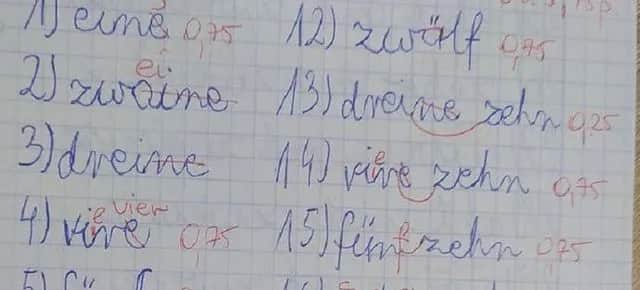 1) eine 0,75
ei
2) zwaine
3) dreine
e vier
4) vire 0,75
12) zwölf 0,75
13) dreine zehn 0,25
e
14) vire zehn 0,75
15) fünf zehn 0,75